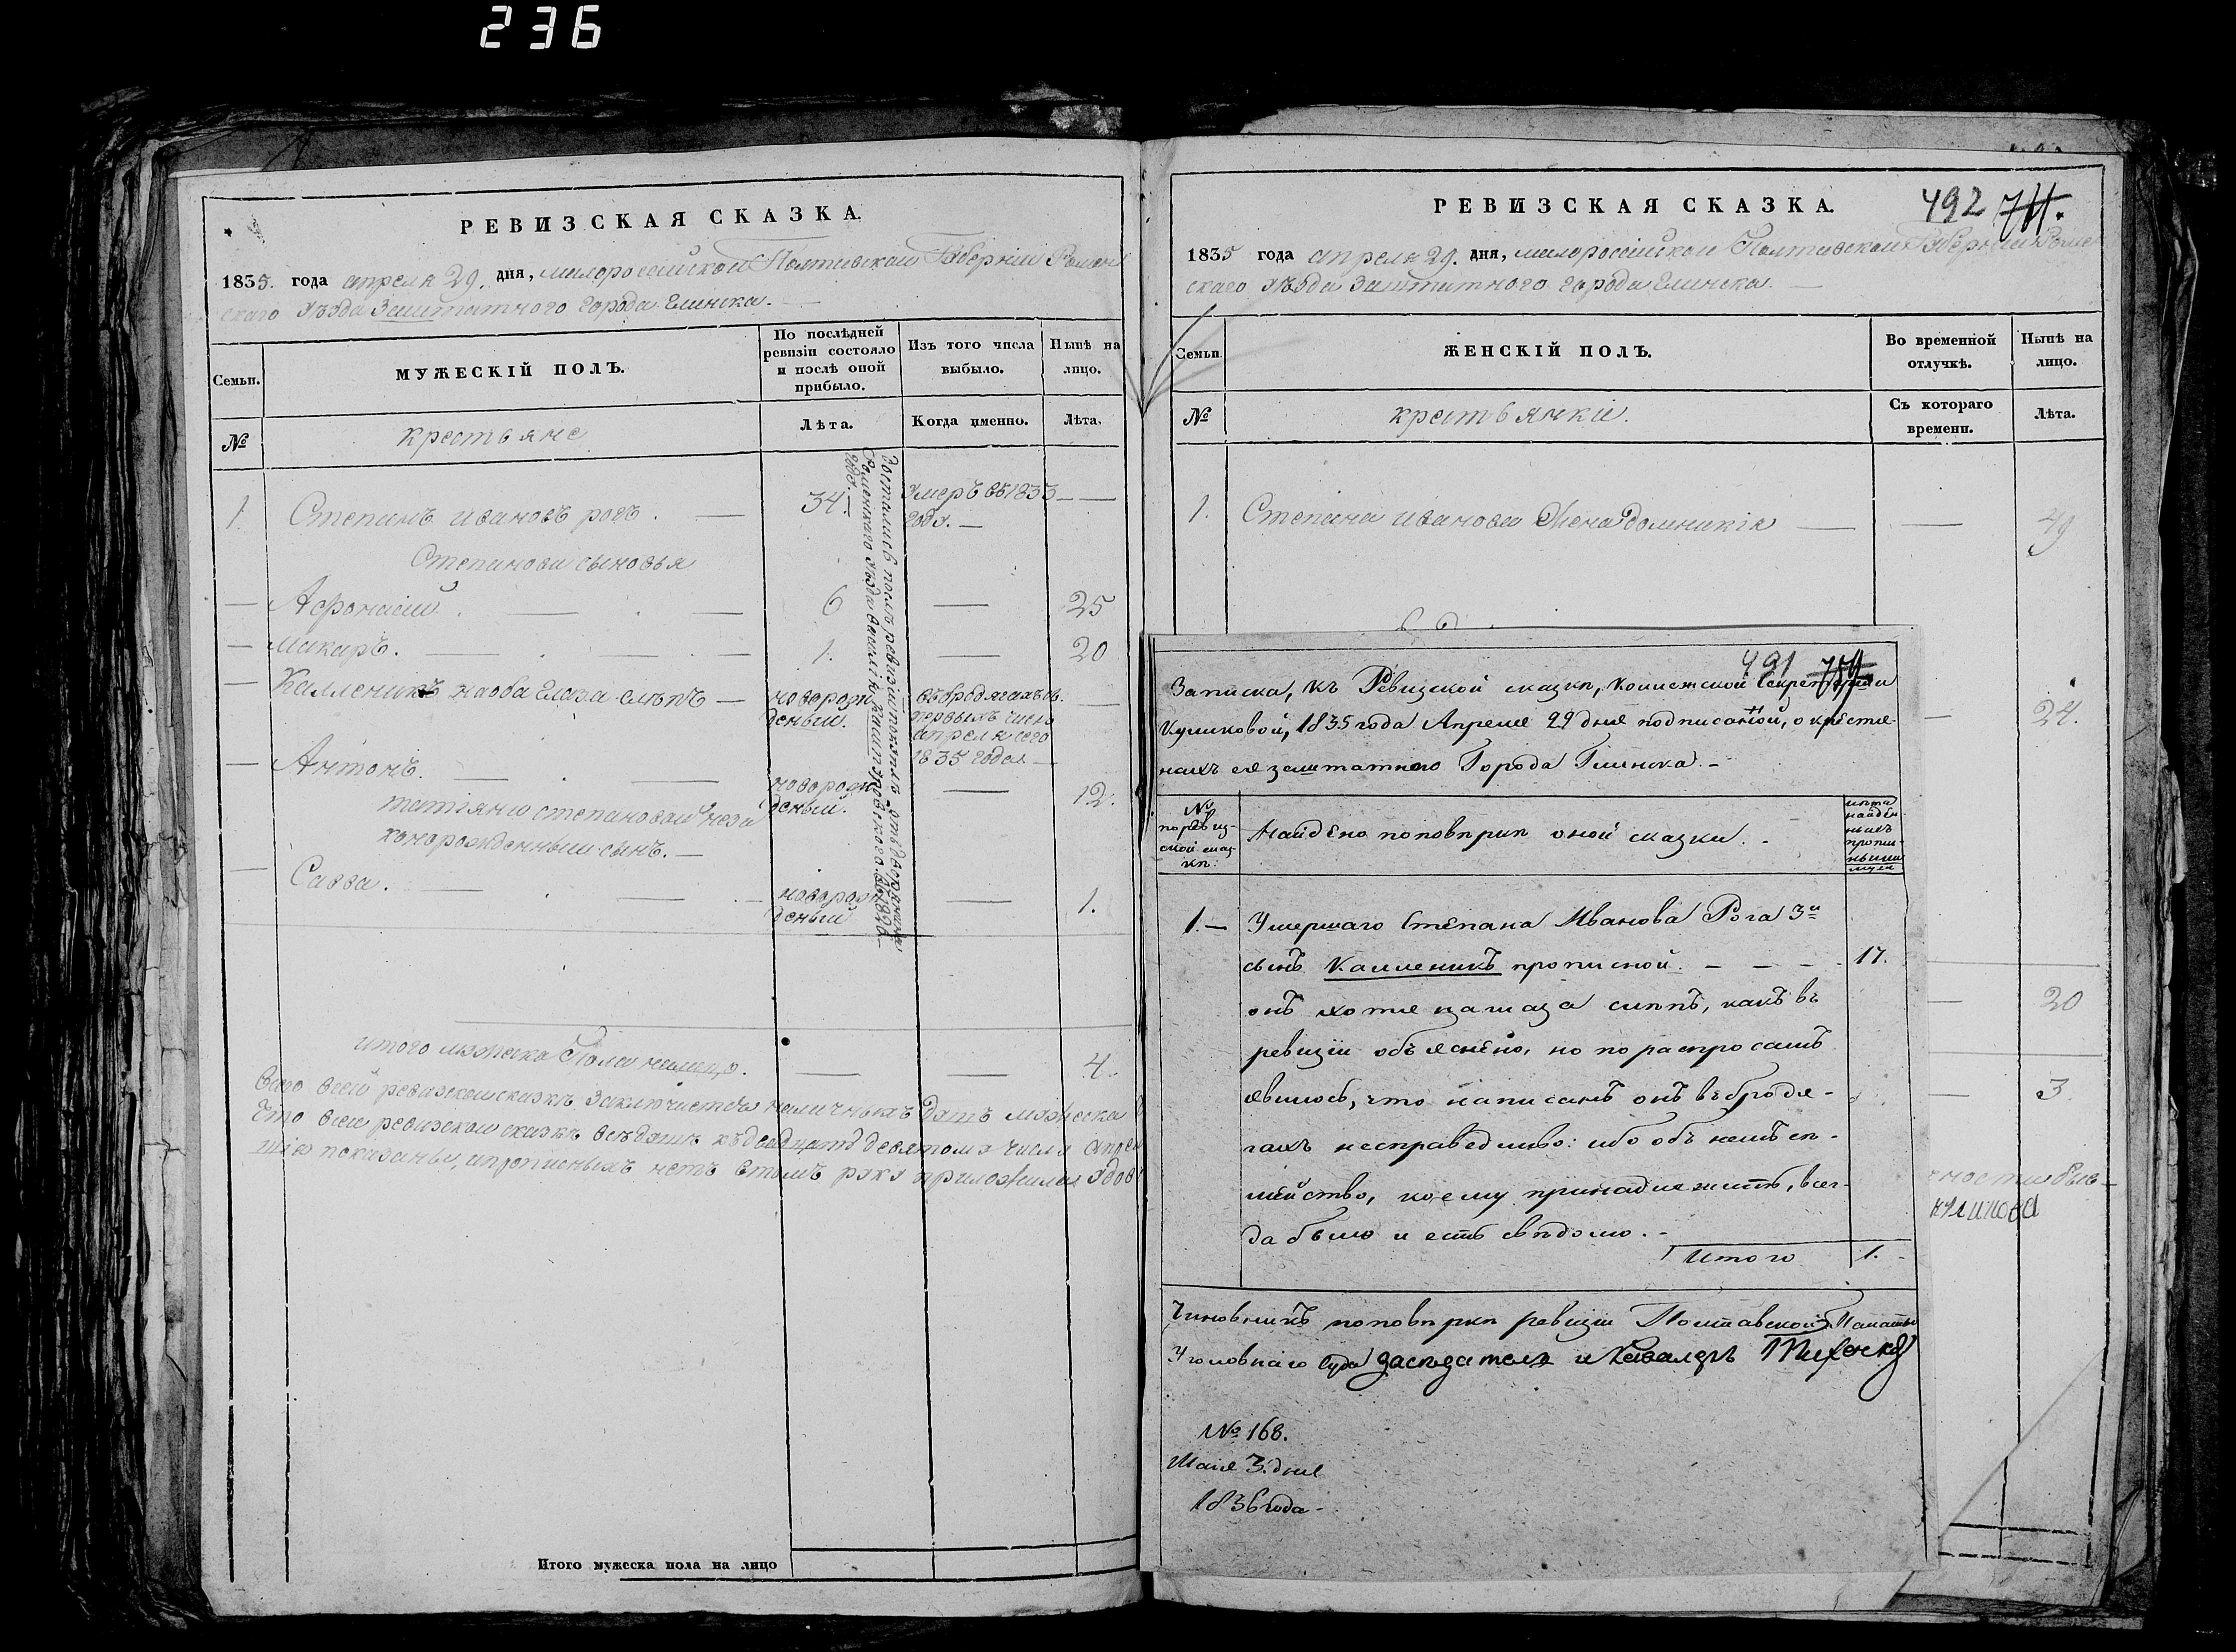 236
РЕВИЗСКАЯ СКАЗКА.
1835. года апреля 29. дня, малороссийской Полтавской Губернии Ромен
скаго уъзда Заштатного города Глинска.
Семьи.
МУЖЕСКІЙ ПОЛЪ.
По послѣдней
ревизіи состояло
и послѣ оной
прибыло.
Изъ того числа
выбыло.
Нынѣ на
лицо.
№
крестьяне
Лѣта.
Когда именно.
Лѣта.
1. Степанъ ивановъ рогъ. 34. умеръ въ 1833
году.
Степанови сыновья
Афонасий. 6 25
Макаръ. 1. 20
Калленикъ на оба глаза слѣпъ новорож
деный. въ бродягахъ съ
первыхъ чисел
апреля сего
1835 года
Антонъ. новорож
деный. 12.
татіяны степановой неза
конорожденный сынъ.
Савва. новорож
деный 1.
итого мужеска Пола налицо. 4.
Всего всей ревизской сказкѣ заключается наличныхъ душъ мужеска
Что всей ревизской сказкѣ всѣ душы къ двадцать девятому числу апрел
показаны, ипрописныхъ нетъ втомъ руку приложила вдов
Итого мужеска пола на лицо
РЕВИЗСКАЯ СКАЗКА.
492
1835 года апреля 29. дня, малороссийской Полтавской Губернии Ромен
скаго уъзда Заштатного города Глинска.
Семьи.
ЖЕНСКІЙ ПОЛЪ.
Во временной
отлучкѣ.
Нынѣ на
лицо.
№
крестьянки.
Съ котораго
времени.
Лѣта.
1. Степана иванова Жена домникія 49
24.
20
3
куликова
491
Записка, къ Ревизской сказкѣ, Коллежской Секретарши
Куликовой, 1835 года Апреля 29 дня подписанной, о крестья-
нахъ ея заштатного Города Глинска. -
№
по ревиз-
ской сказ-
кѣ.
Найдено поповѣркѣ оной сказки. -
лѣта
найден-
ныхъ
пропис-
ными
мужс
1. — Умершаго Степана Иванова Рога 3й
сынъ Калленикъ прописной. — — — 17.
онъ хотя наглаза слѣпъ, какъ въ
ревизіи объяснено, но по распросамъ
явилось, что написанъ онъ въ бродя-
гахъ несправедливо: ибо объ немъ се-
мейство, коему принадлежитъ, всег-
да было и есть свѣдомо. -
Итого 1. -
Чиновникъ поповѣркѣ ревизіи Полтавской Палаты
Уголовнаго Суда засѣдатель и Кавалеръ
№ 168.
Маія 3. дня
1836 года -